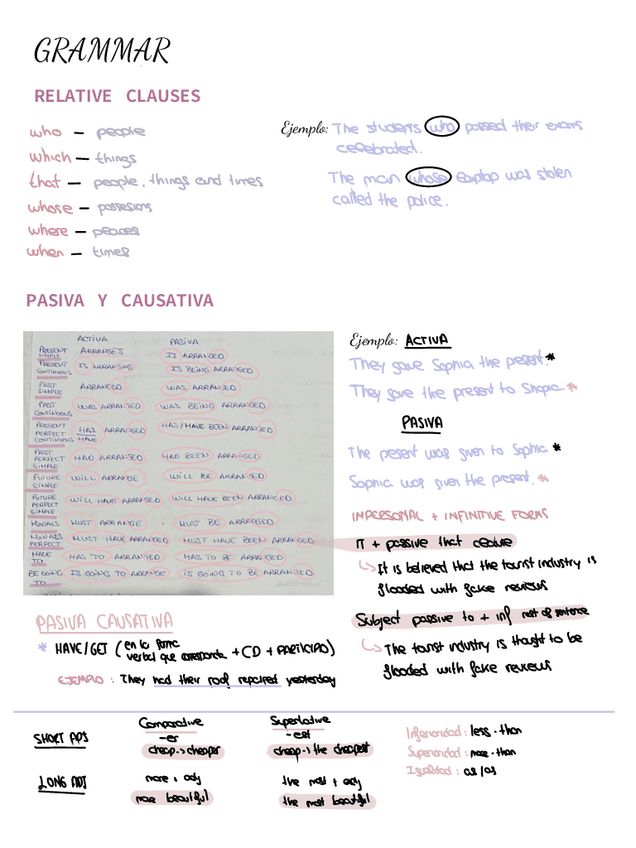 GRAMMAR
RELATIVE CLAUSES
who — people
which — things
that — people, things and times
whose — possesions
where — places
when — times
Ejemplo: The students who passed their exams
celebrated.
The man whose laptop was stolen
called the police.
PASIVA Y CAUSATIVA
ACTIVA PASIVA
PRESENT SIMPLE ARRANGES IS ARRANGED
PRESENT CONTINUOUS IS ARRANGING IS BEING ARRANGED
PAST SIMPLE ARRANGED WAS ARRANGED
PAST CONTINUOUS WAS ARRANGED WAS BEING ARRANGED
PRESENT PERFECT CONTINUOUS HAS ARRANGED HAS/HAVE BEEN ARRANGED
HAVE
PAST PERFECT SIMPLE HAD ARRANGED HAD BEEN ARRANGED
FUTURE SIMPLE WILL ARRANGE WILL BE ARRANGED
FUTURE PERFECT SIMPLE WILL HAVE ARRANGED WILL HAVE BEEN ARRANGED
MODALS MUST ARRANGE MUST BE ARRANGED
MODALS PERFECT MUST HAVE ARRANGED MUST HAVE BEEN ARRANGED
HAVE TO HAS TO ARRANGE HAS TO BE ARRANGED
BE GOING TO IS GOING TO ARRANGE IS GOING TO BE ARRANGED
Ejemplo: ACTIVA
They gave Sophia the present.*
They gave the present to Shopia *
PASIVA
The present was given to Sophia *
Sophia was given the present. *
IMPERSONAL + INFINITIVE FORMS
IT + passive that
It is believed that the tourist industry is
flooded with fake reviews
Subject passive to + inf rest of sentence
The tourist industry is thought to be
flooded with fake reviews
PASIVA CAUSATIVA
* HAVE/GET (en la forma
verbal que corresponda + CD + PARTICIPIO)
EJEMPLO: They had their roof repaired yesterday
Comparative Superlative
SHORT ADJ -er -est
cheap -> cheaper cheap -> the cheapest
LONG ADJ more + adj the most + adj
more beautiful the most beautiful
Inferioridad: less - than
Superioridad: more - than
Igualdad: as/as